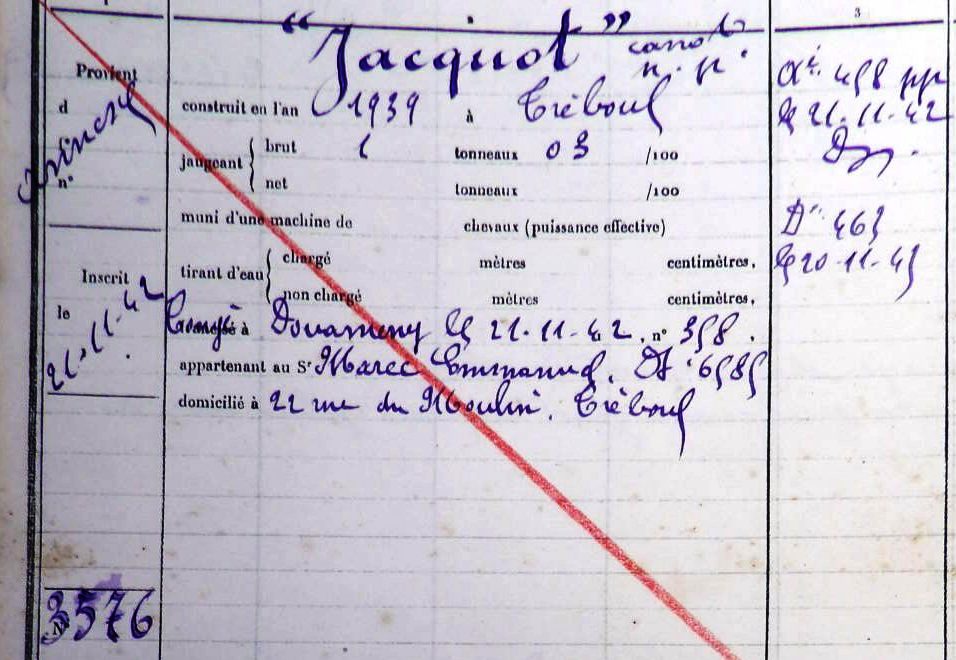 3
"Jacquot" canot
n. p.
Provient
d
n°
construit en l'an 1939 à Tréboul
jaugeant { brut 1 tonneaux 03 /100
net tonneaux /100
muni d'une machine de chevaux (puissance effective)
tirant d'eau { chargé mètres centimètres.
non chargé mètres centimètres.
à Douarnenez le 21-11-42. n° 358.
appartenant au Sr Marec Emmanuel. Dz 6585
domicilié à 22 rue du Moulin. Tréboul
Inscrit
le
21-11-42
3576
458 pp
le 21-11-42
Dz.
le 20-11-45